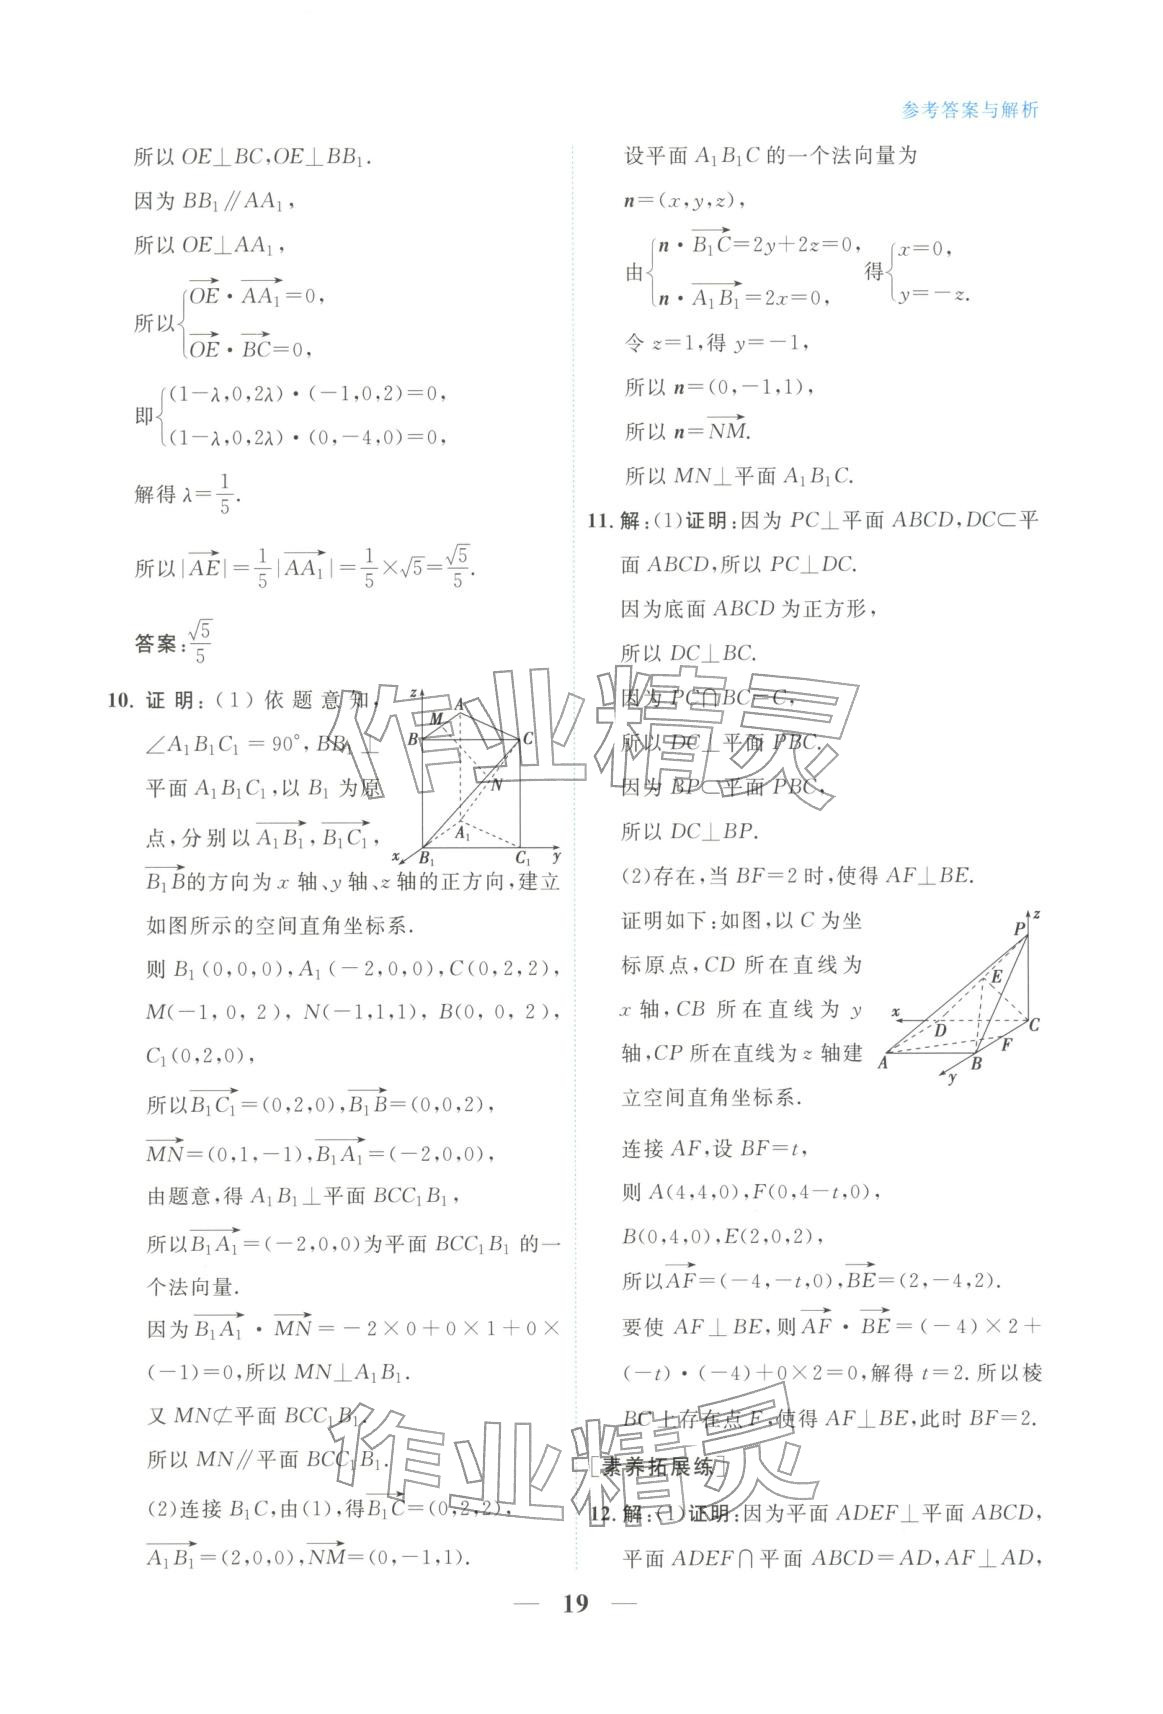 参考答案与解析
所以 OE⊥BC,OE⊥BB₁.
因为 BB₁∥AA₁,
所以 OE⊥AA₁,
所以{OE→·AA₁→=0,
OE→·BC→=0,
即{(1-λ,0,2λ)·(-1,0,2)=0,
(1-λ,0,2λ)·(0,-4,0)=0,
解得 λ=1/5.
所以|AE→|=1/5|AA₁→|=1/5×√5=√5/5.
答案:√5/5
10.证明:(1)依题意知,
∠A₁B₁C₁=90°,BB₁⊥
平面 A₁B₁C₁,以 B₁ 为原
点,分别以 A₁B₁→,B₁C₁→,
B₁B→的方向为 x 轴、y轴、z轴的正方向,建立
如图所示的空间直角坐标系.
则 B₁(0,0,0),A₁(-2,0,0),C(0,2,2),
M(-1,0,2),N(-1,1,1),B(0,0,2),
C₁(0,2,0),
所以B₁C₁→=(0,2,0),B₁B→=(0,0,2),
MN→=(0,1,-1),B₁A₁→=(-2,0,0),
由题意,得 A₁B₁⊥平面 BCC₁B₁,
所以B₁A₁→=(-2,0,0)为平面 BCC₁B₁ 的一
个法向量.
因为B₁A₁→·MN→=-2×0+0×1+0×
(-1)=0,所以 MN⊥A₁B₁.
又 MN⊄平面 BCC₁B₁.
所以 MN∥平面 BCC₁B₁.
(2)连接 B₁C,由(1),得B₁C→=(0,2,2),
A₁B₁→=(2,0,0),NM→=(0,-1,1).
z
A
M
B
C
N
A₁
x
B₁
C₁
y
设平面 A₁B₁C 的一个法向量为
n=(x,y,z),
由{n·B₁C→=2y+2z=0,
n·A₁B₁→=2x=0,
得{x=0,
y=-z.
令 z=1,得 y=-1,
所以 n=(0,-1,1),
所以 n=NM→.
所以 MN⊥平面 A₁B₁C.
11.解:(1)证明:因为 PC⊥平面 ABCD,DC⊂平
面 ABCD,所以 PC⊥DC.
因为底面 ABCD 为正方形,
所以 DC⊥BC.
因为 PC∩BC=C,
所以 DC⊥平面 PBC.
因为 BP⊂平面 PBC,
所以 DC⊥BP.
(2)存在,当 BF=2时,使得 AF⊥BE.
证明如下:如图,以 C 为坐
标原点,CD 所在直线为
x 轴,CB 所在直线为 y
轴,CP所在直线为z轴建
立空间直角坐标系.
z
P
E
x
D
C
F
A
B
y
连接 AF,设 BF=t,
则 A(4,4,0),F(0,4-t,0),
B(0,4,0),E(2,0,2),
所以AF→=(-4,-t,0),BE→=(2,-4,2).
要使 AF⊥BE,则AF→·BE→=(-4)×2+
(-t)·(-4)+0×2=0,解得 t=2.所以棱
BC上存在点 F,使得 AF⊥BE,此时 BF=2.
[素养拓展练]
12.解:(1)证明:因为平面 ADEF⊥平面 ABCD,
平面 ADEF∩平面 ABCD=AD,AF⊥AD,
作业精灵
作业精灵
— 19 —